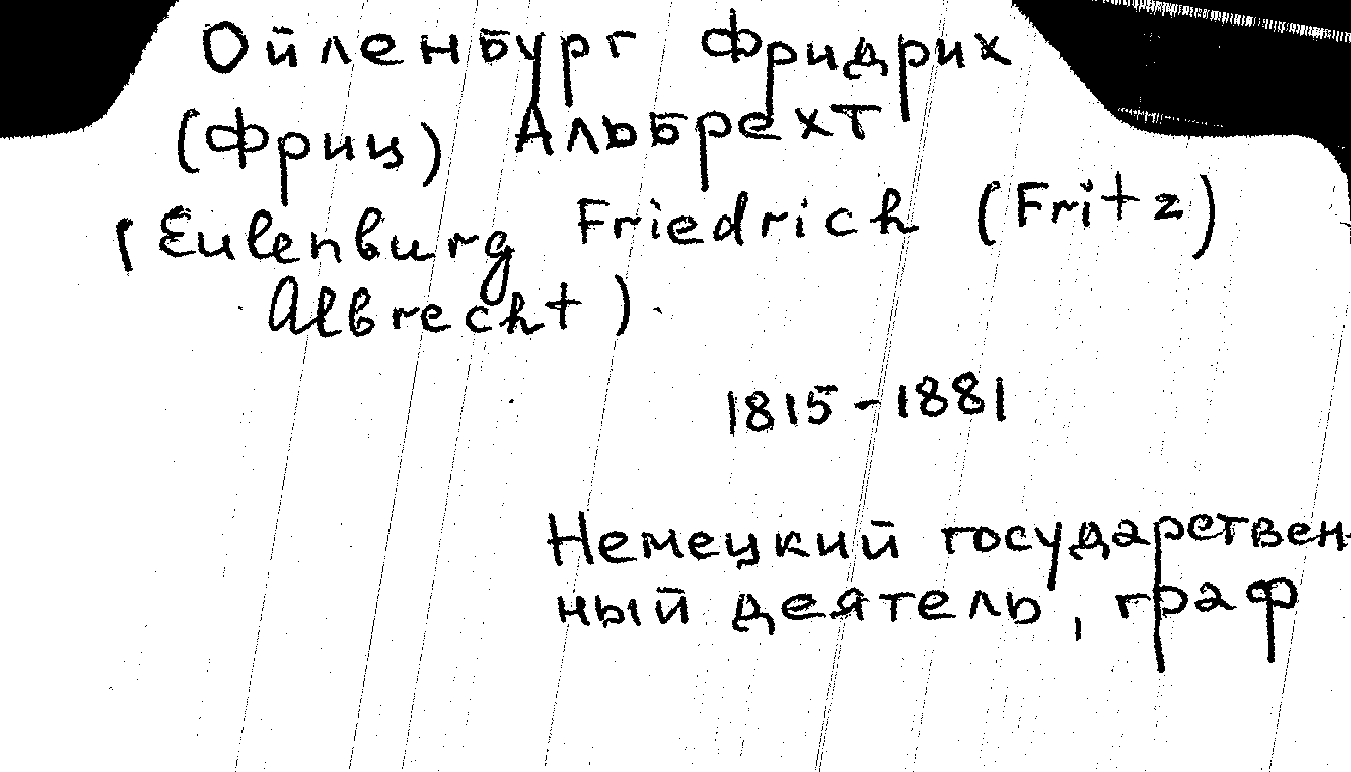 Ойленбург Фридрих
(Фриц) Альбрехт
(Eulenburg Friedrich (Fritz)
Albrecht)
1815-1881
Немецкий государствен-
ный деятель, граф